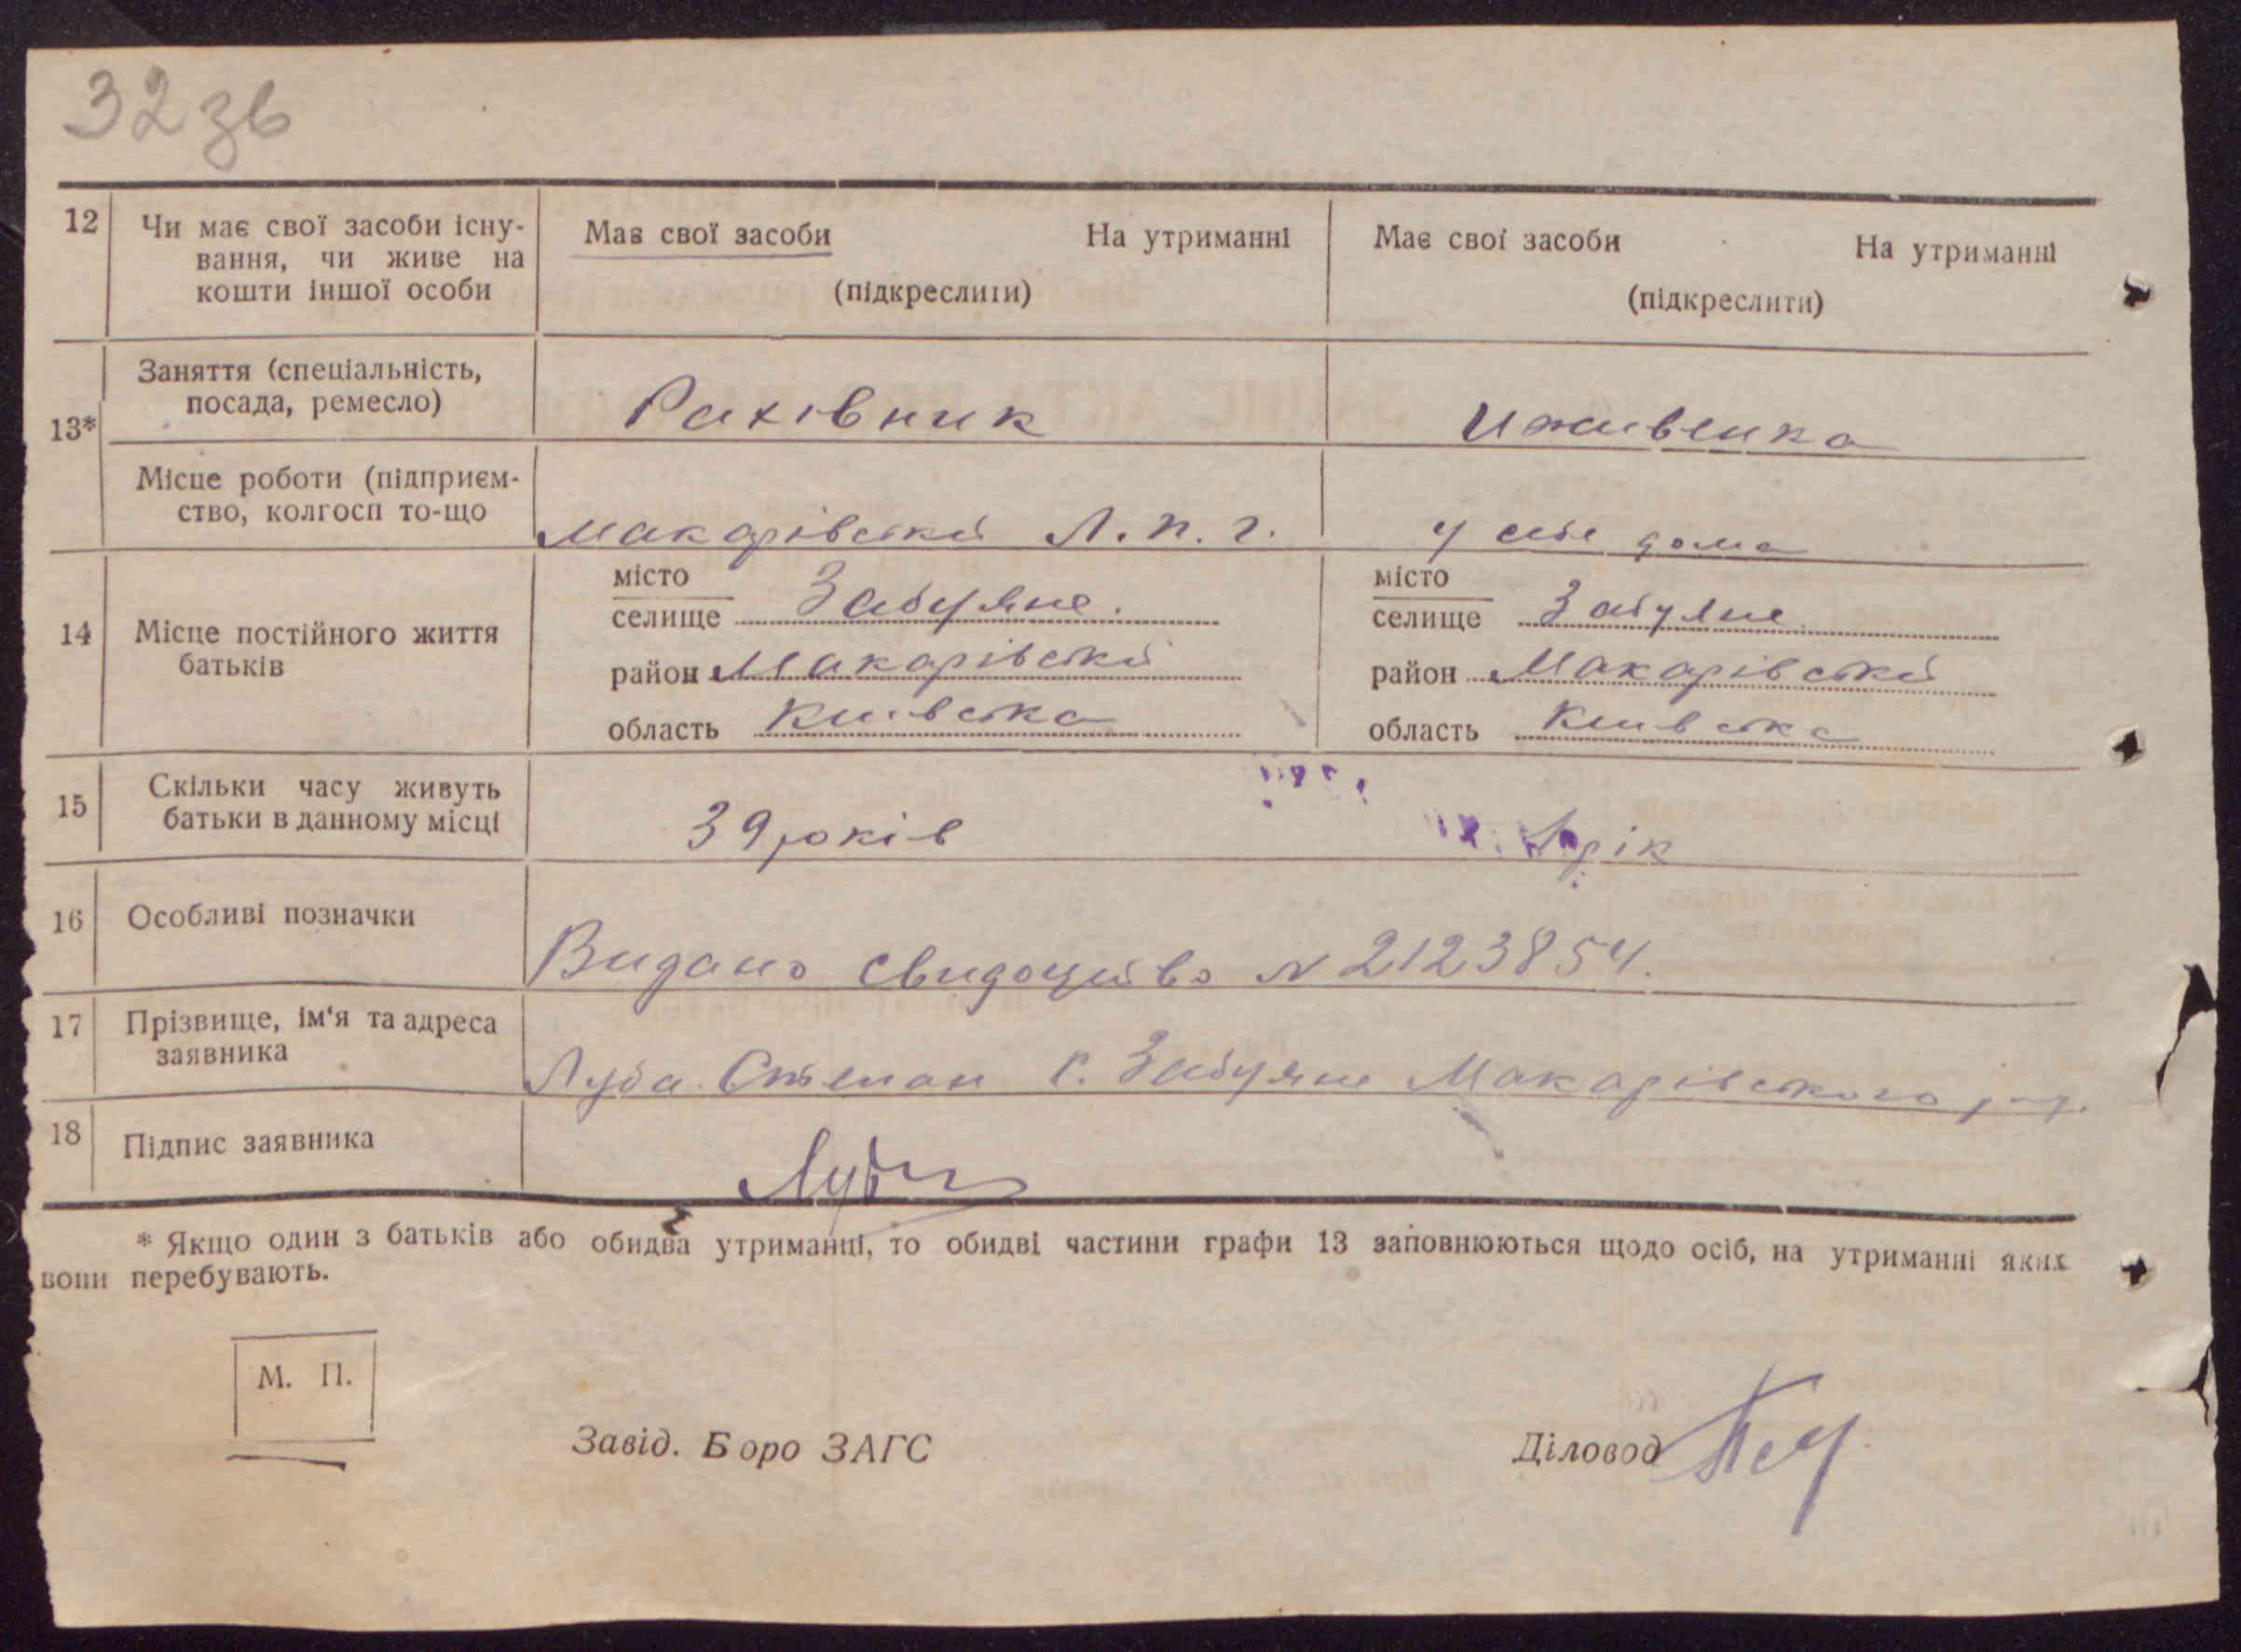 32 зв
12 Чи має свої засоби існу- Має свої засоби На утриманні Має свої засоби На утриманні
вання, чи живе на
кошти іншої особи (підкреслити) (підкреслити)
Заняття (спеціальність,
посада, ремесло) Рахівник Иживенка
13*
Місце роботи (підприєм-
ство, колгосп то-що Макарівській Л.п.г. у себе дома
місто місто
селище Забуяне. селище Забуяне
14 Місце постійного життя
батьків район Макарівській район Макарівській
область Київська область Київська
15 Скільки часу живуть
батьки в данному місці 39 років рік
16 Особливі позначки
Видано свидоцтво N 2123854.
17 Прізвище, ім'я та адреса
заявника Луба Степан с. Забуяне Макарівського
18 Підпис заявника Луб
* Якщо один з батьків або обидва утриманці, то обидві частини графи 13 заповнюються щодо осіб, на утриманні яких
вони перебувають.
М. П.
Завід. Боро ЗАГС Діловод